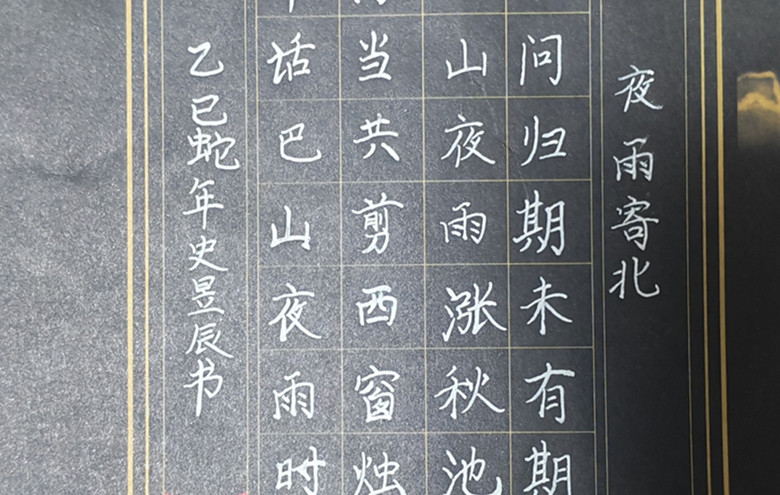 夜雨寄北
问归期未有期
山夜雨涨秋池
当共剪西窗烛
话巴山夜雨时
乙巳蛇年史昱辰书